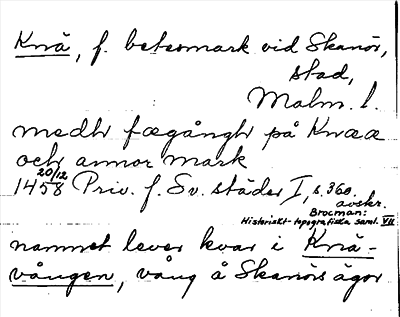 Knä, f. betesmark vid Skanör,
stad,
Malm. l.
medh fægångh på Knææ
och annor mark
20/12
1458 Priv. f. Sv. städer I, s. 360.
avskr.
Brocman:
Historiskt-topografiska saml. VII
namnet lever kvar i Knä-
vången, vång å Skanörs ägor